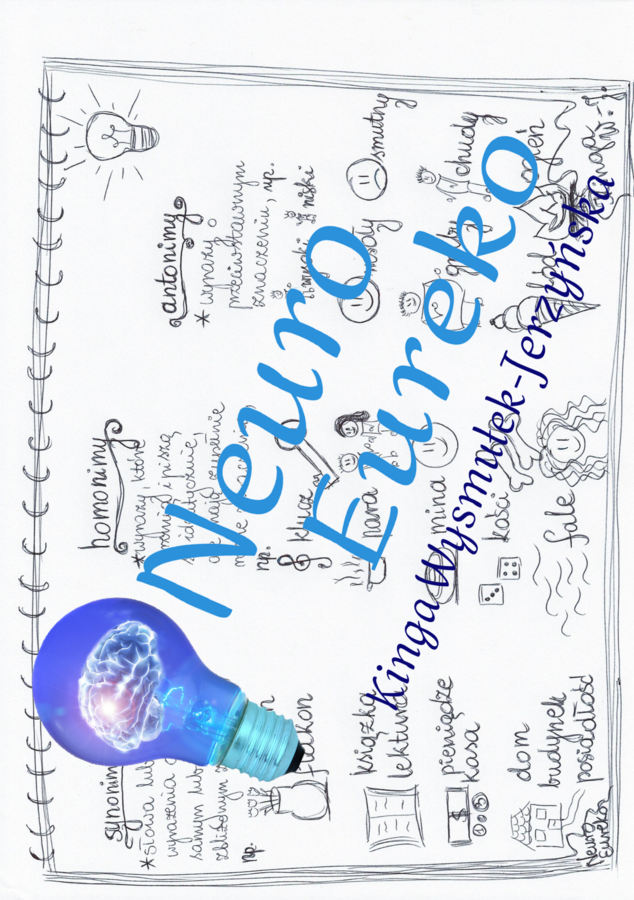 synonimy
*słowa lub
wyrażenia o
samym lub
zbliżonym
np.
flakon
książka
lektura
pieniądze
kasa
dom
budynek
posiadłość
Neuro
Eureko
homonimy
*wyrazy, które
brzmią i piszą
się identycznie,
ale mają zupełnie
np.
klucz
para
mina
kości
fale
antonimy
*wyrazy o
przeciwstawnym
znaczeniu, np.
niski
wesoły
smutny
gruby
chudy
Neuro
Eureko
Kinga Wysmułek-Jerzyńska